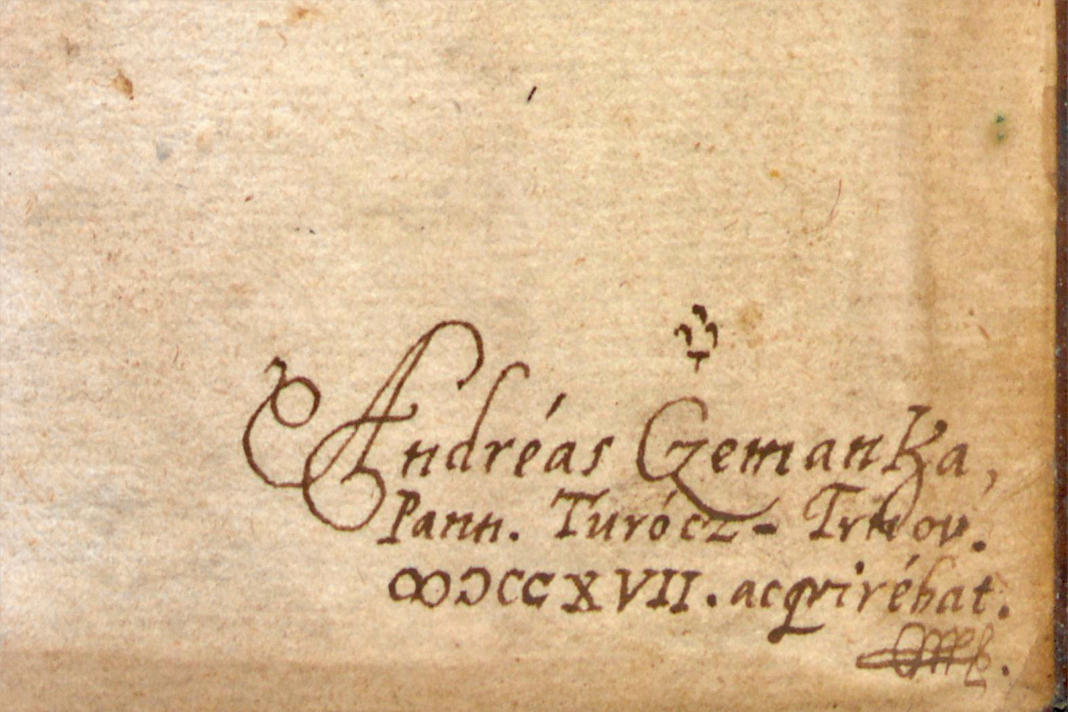 Andréas Czemanka,
Pann. Turócz- Trnov.
ↀↃCCXVII. acqvirébat.